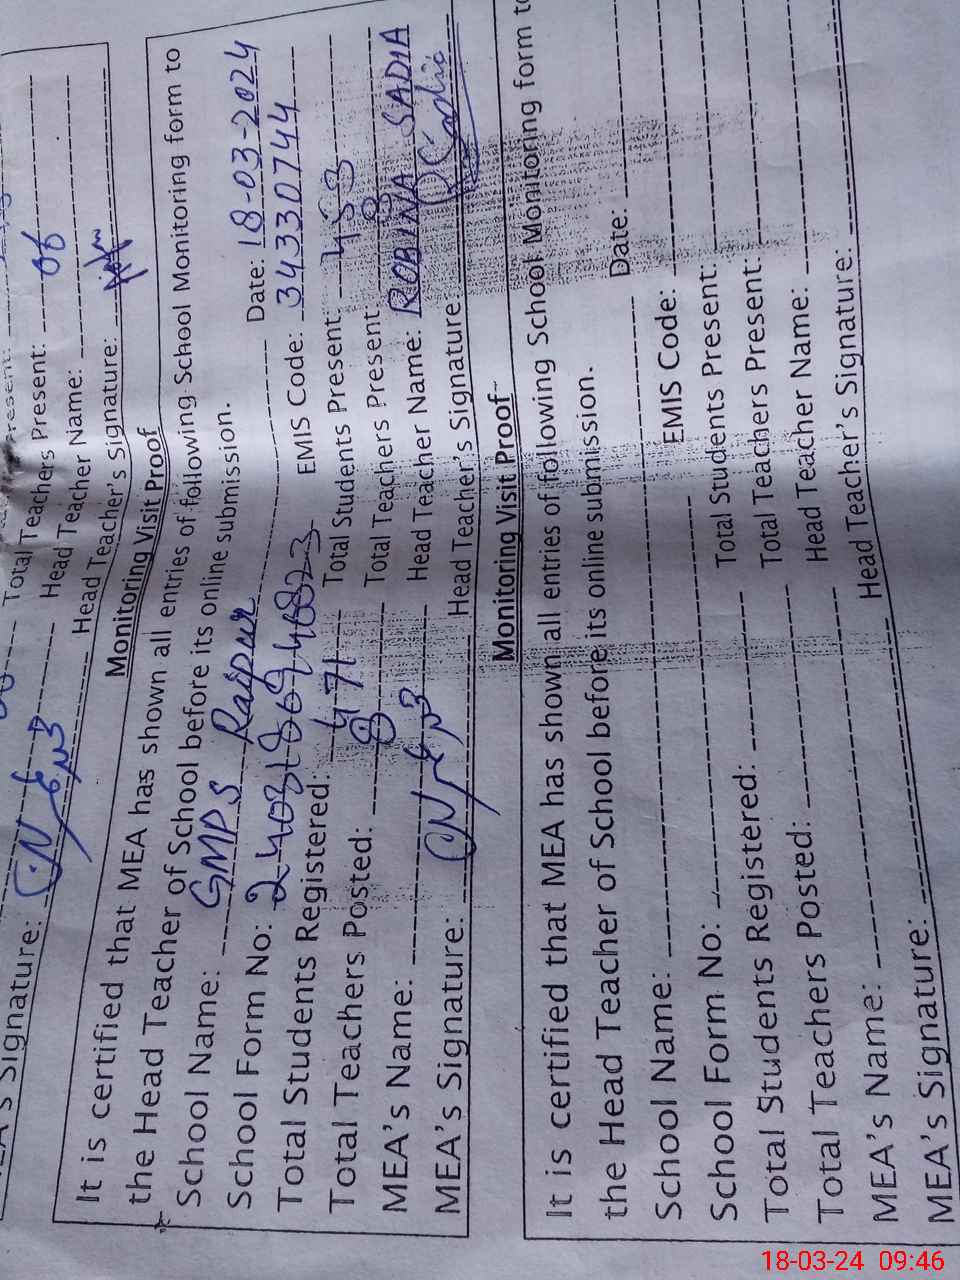 Total Teachers Present: 06
Head Teacher Name:
MEA's Signature: Head Teacher's Signature:
Monitoring Visit Proof
It is certified that MEA has shown all entries of following School Monitoring form to
the Head Teacher of School before its online submission.
School Name: GMPS Raipur Date: 18-03-2024
School Form No: EMIS Code: 34330744
Total Students Registered: 471 Total Students Present: 453
Total Teachers Posted: 8 Total Teachers Present: 8
MEA's Name: Head Teacher Name: ROBINA SADIA
MEA's Signature: Head Teacher's Signature:
Monitoring Visit Proof
It is certified that MEA has shown all entries of following School Monitoring form to
the Head Teacher of School before its online submission.
School Name: Date:
School Form No: EMIS Code:
Total Students Registered: Total Students Present:
Total Teachers Posted: Total Teachers Present:
MEA's Name: Head Teacher Name:
MEA's Signature: Head Teacher's Signature:
18-03-24 09:46